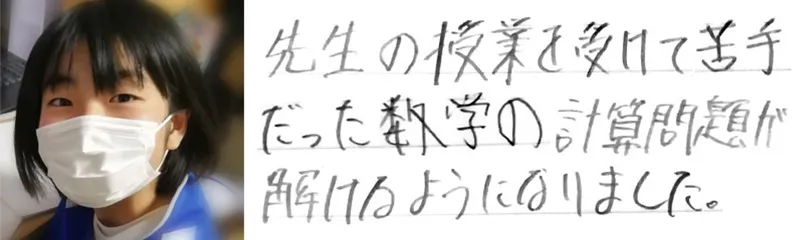 先生の授業を受けて苦手
だった数学の計算問題が
解けるようになりました。